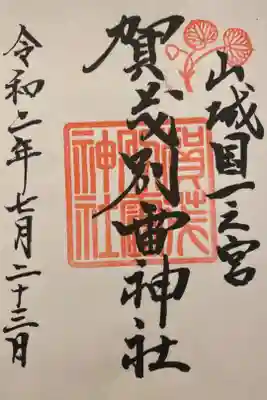 山城国一之宮
賀茂別雷神社
賀茂別雷神社
令和二年七月二十三日